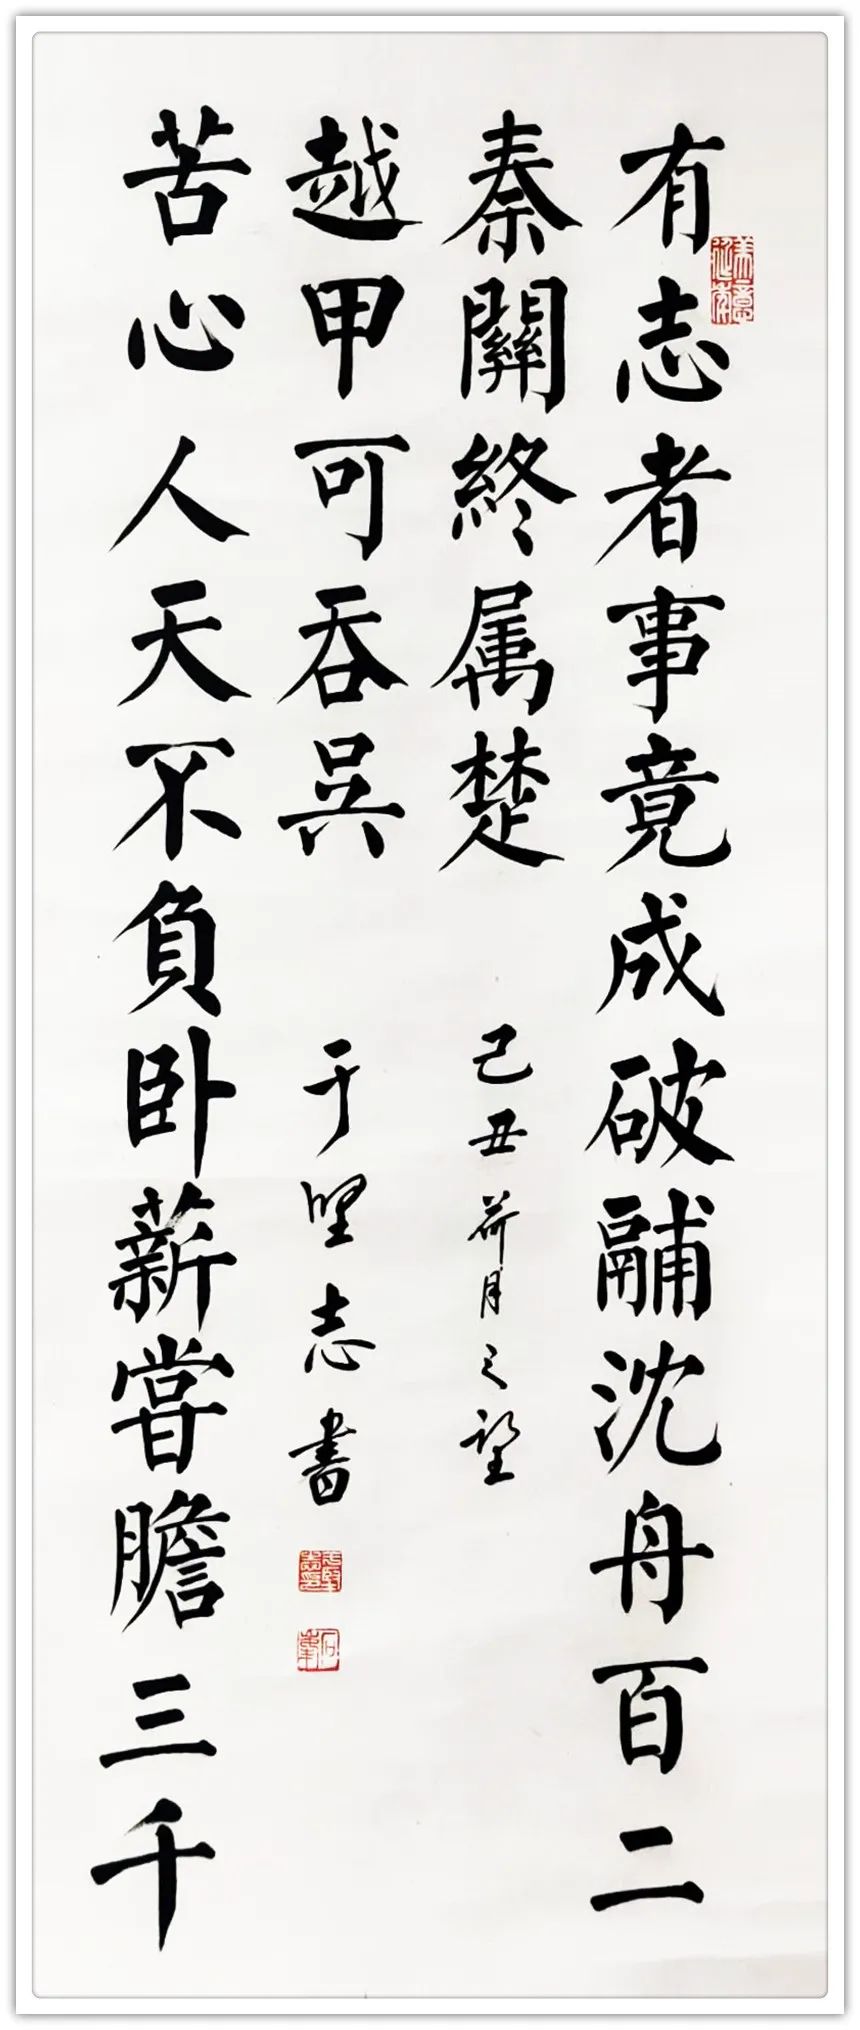 有志者事竟成破鬴沈舟百二
秦關終属楚
己丑荷月之望
苦心人天不負卧薪嘗膽三千
越甲可吞吳
于堅志書
美意延年